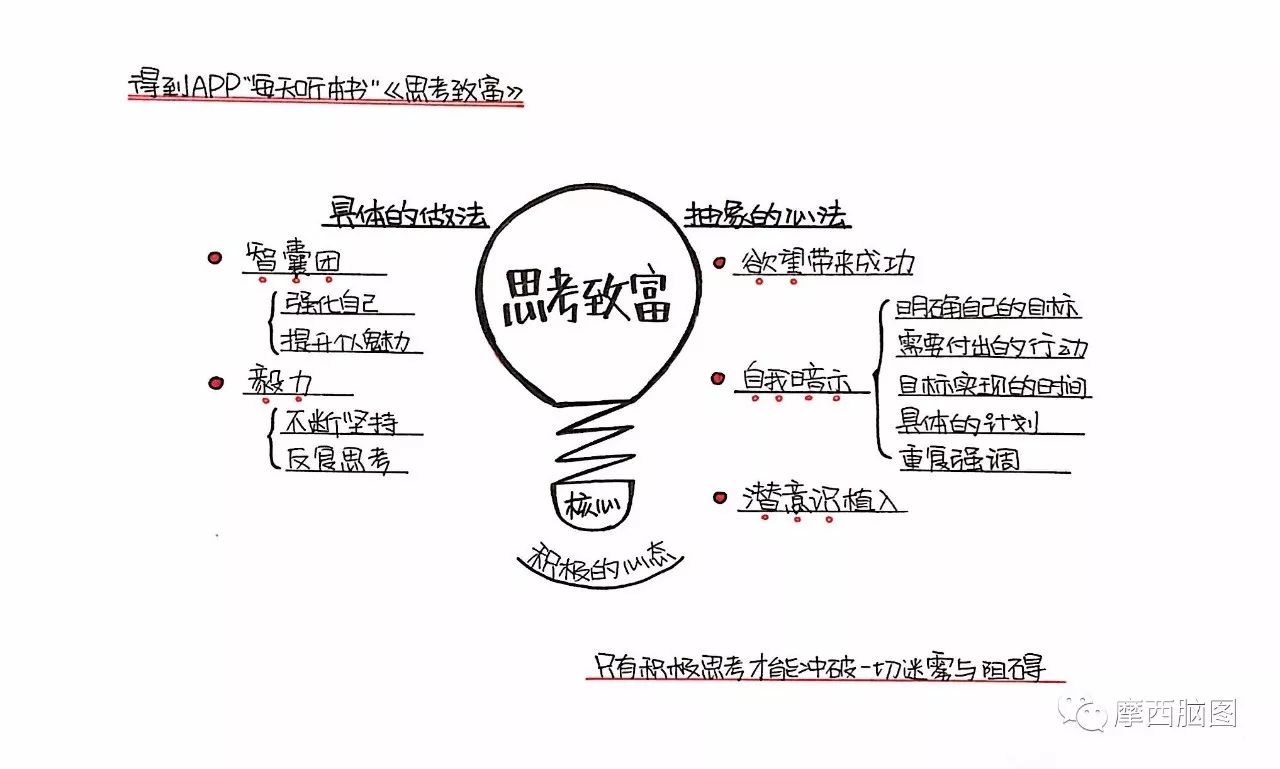 得到APP"每天听本书"《思考致富》
具体的做法
智囊团
强化自己
提升个人魅力
毅力
不断坚持
反复思考
思考致富
核心
积极的心态
抽象的心法
欲望带来成功
自我暗示
明确自己的目标
需要付出的行动
目标实现的时间
具体的计划
重复强调
潜意识植入
只有积极思考才能冲破一切迷雾与阻碍
摩西脑图